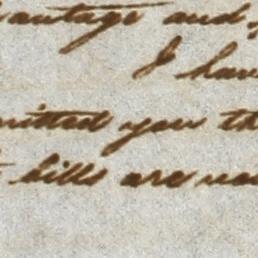 vantage and
I hav
mitted you th
bills are va